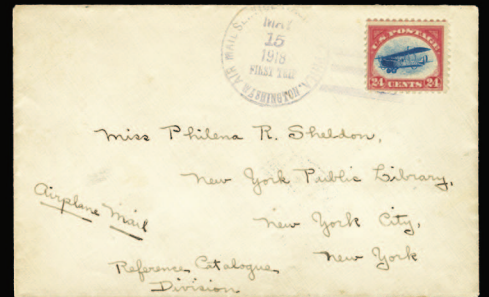 AIR MAIL SERVICE
WASHINGTON
MAY
15
1918
FIRST TRIP
U.S. POSTAGE
24 CENTS 24
Miss Philena R. Sheldon,
New York Public Library,
Airplane Mail
New York City,
New York
Reference Catalogue
Division